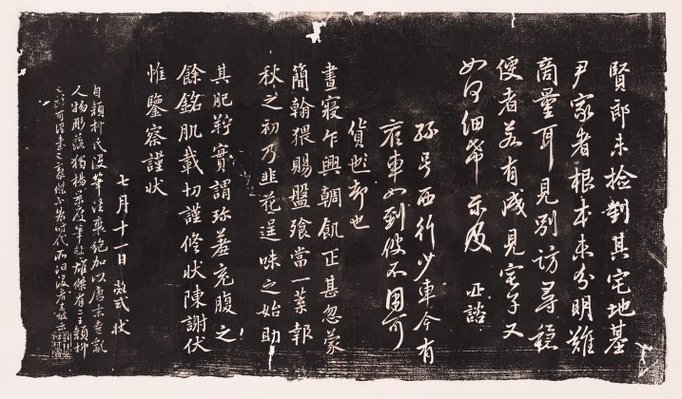 賢郎未檢對其宅地基
尹家者根本未分明難
商量耳見別訪尋穩
便者若有成見宅子又
如何細希示及 諮
孫号西行少車今有
雇車如到彼不用可
貨也
晝寢乍興輖飢正甚忽蒙
簡翰猥賜盤飧當一葉報
秋之初乃韭花逞味之始助
其肥羜實謂珍羞充腹之
餘銘肌載切謹修狀陳謝伏
惟鑒察謹狀
七月十一日 凝式 狀
自顏柳氏沒筆法衰絕加以唐末喪亂
人物彫落獨楊凝式筆蹟雄傑有二王顏柳
之餘可謂書之豪傑不為時代所汩沒者